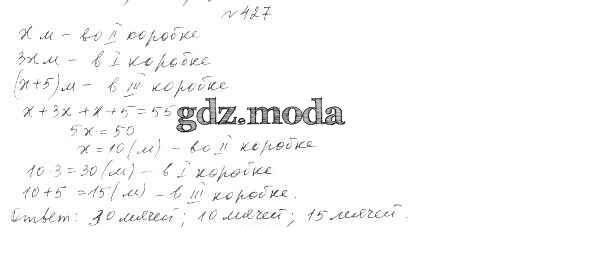 №427
x м – во II коробке
3x м – в I коробке
(x+5) м – в III коробке
x + 3x + x + 5 = 55
gdz.moda
5x = 50
x = 10 (м) – во II коробке
10 · 3 = 30 (м) – в I коробке
10 + 5 = 15 (м) – в III коробке.
Ответ: 30 мячей; 10 мячей; 15 мячей.